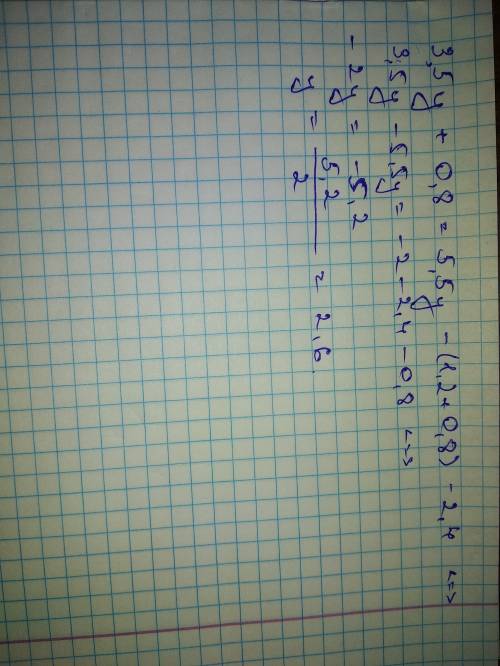 3,5y + 0,8 = 5,5y - (1,2+0,8) - 2,4 <=>
3,5y - 5,5y = -2 - 2,4 - 0,8 <=>
-2y = -5,2
y = 5,2/2 = 2,6.